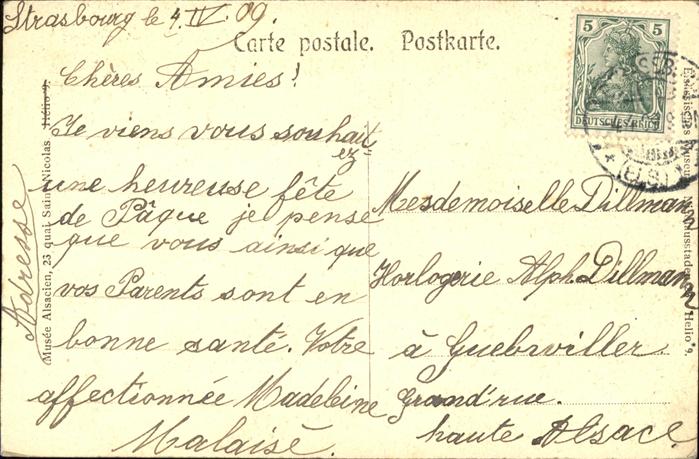 Strasbourg le 4. IV. 09.
Carte postale. Postkarte.
Chères Amies!
Je viens vous souhait-
ez
une heureuse fête
de Pâque je pense
que vous ainsi que
vos Parents sont en
bonne santé. Votre
affectionnée Madeleine
Malaisé.
Adresse
Musée Alsacien, 23 quai Saint Nicolas. Hélio 9.
5 5
DEUTSCHES REICH
Mesdemoiselle Dillmann
Horlogerie Alph. Dillmann
à Guebwiller
Grand'rue.
haute Alsace
Elsässisches Museum
Helio 9.